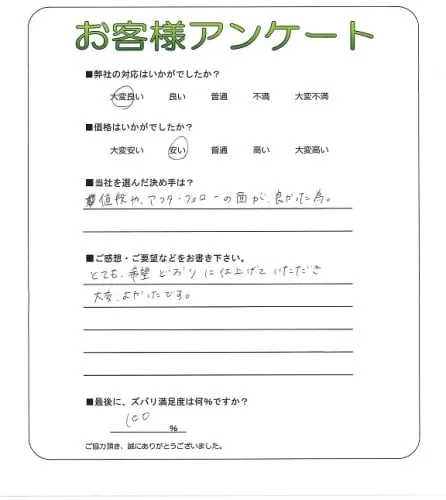 お客様アンケート
■弊社の対応はいかがでしたか?
大変良い 良い 普通 不満 大変不満
■価格はいかがでしたか?
大変安い 安い 普通 高い 大変高い
■当社を選んだ決め手は?
値段や、アフターフォローの面が、良かった為。
■ご感想・ご要望などをお書き下さい。
とても、希望どおりに仕上げていただき
大変、よかったです。
■最後に、ズバリ満足度は何%ですか?
100 %
ご協力頂き、誠にありがとうございました。